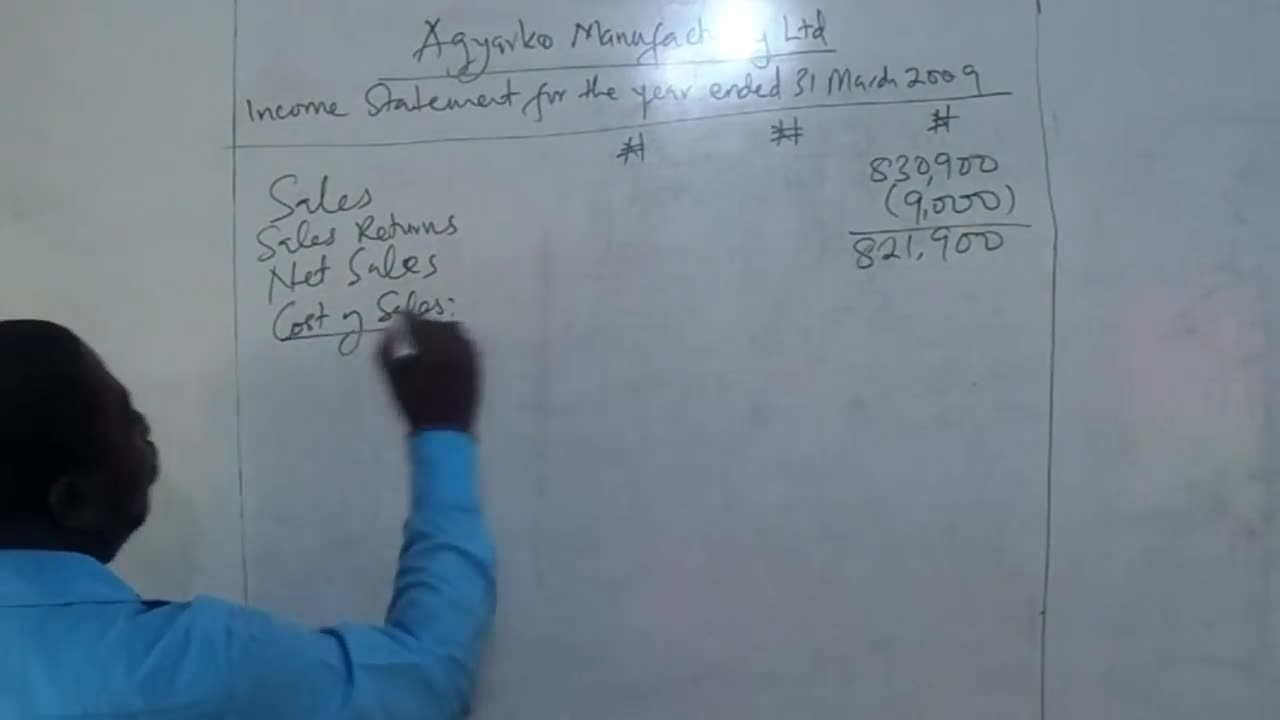 Agyarko Manufact y Ltd
Income Statement for the year ended 31 March 2009
# # #
Sales 830,900
Sales Returns (9,000)
Net Sales 821,900
Cost of Sales: